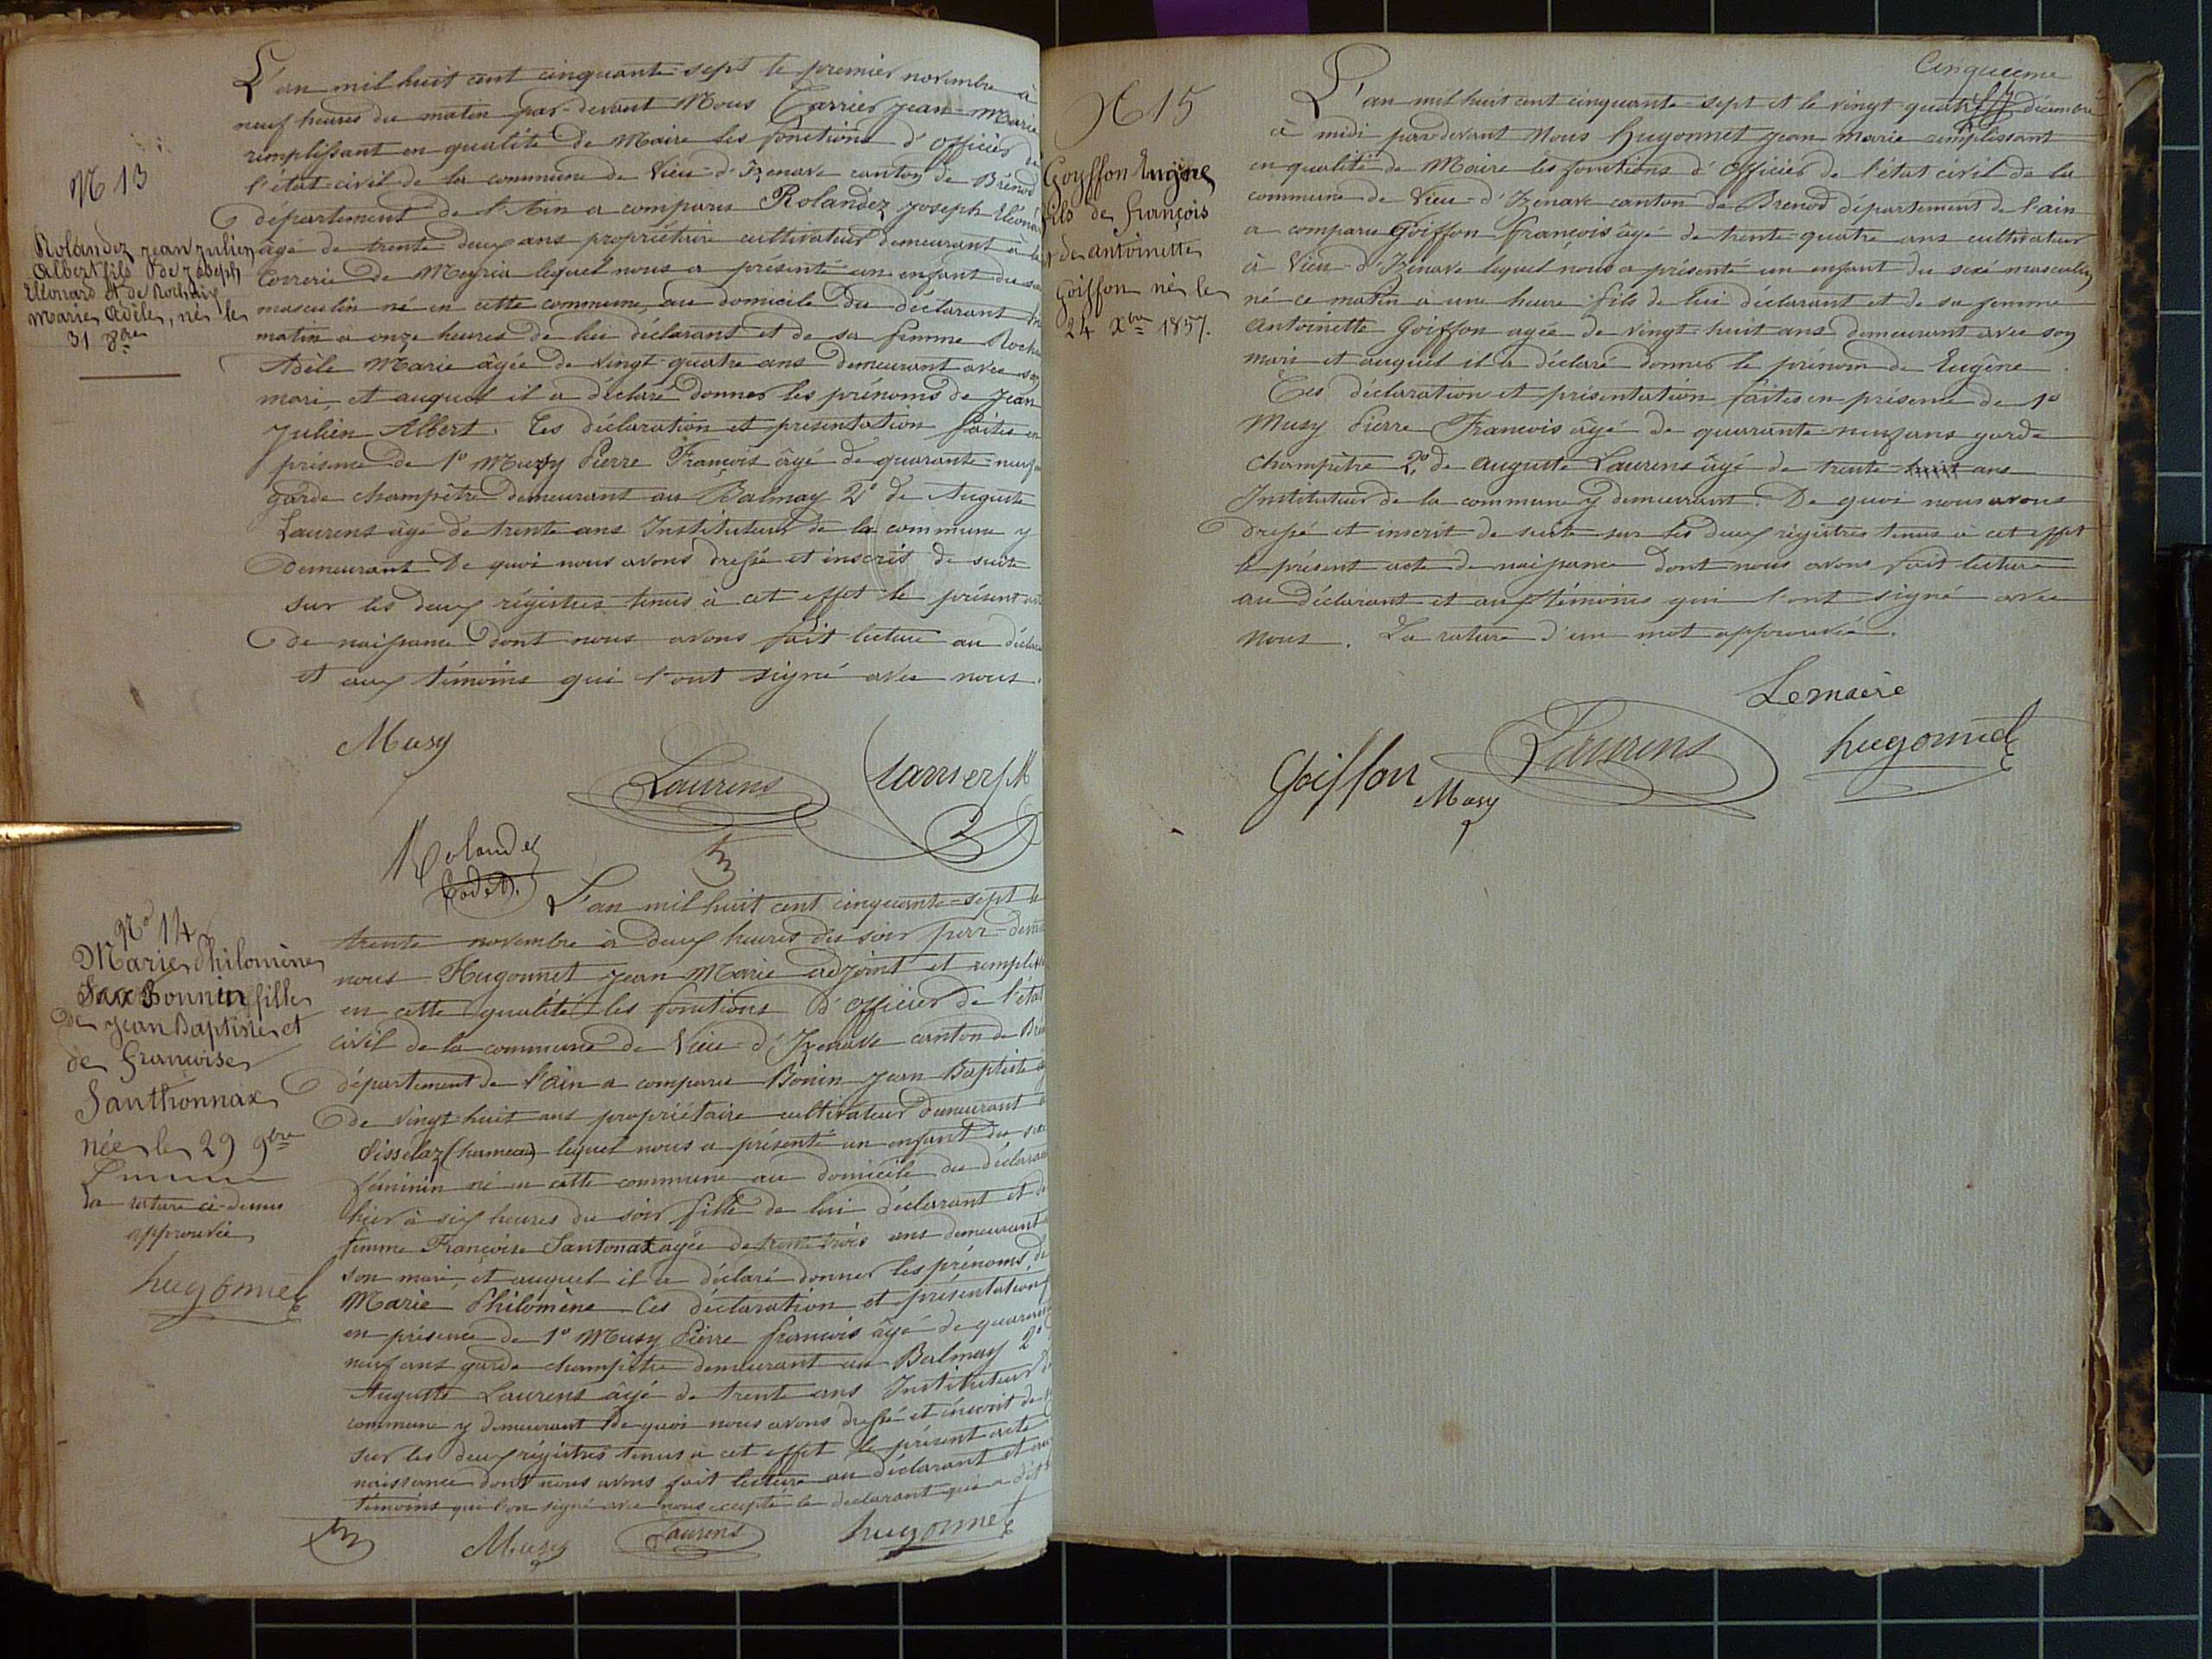 L'an mil huit cent cinquante-sept le premier novembre à
neuf heures du matin par devant Nous Carrier Jean-Marie
remplissant en qualité de Maire les fonctions d'officier de
l'état-civil de la commune de Vieu-d'Izenave canton de Brénod
département de l'Ain a comparu Rolandez Joseph Eléonard
âgé de trente-deux ans propriétaire cultivateur demeurant à la
Correrie de Meyria lequel nous a présenté un enfant du sexe
masculin né en cette commune, au domicile du déclarant
matin à onze heures de lui déclarant et de sa femme
Adèle Marie âgée de vingt-quatre ans demeurant avec son
mari et auquel il a déclaré donner les prénoms de Jean
Julien Albert. Ces déclaration et présentation faites en
présence de 1° Musy Pierre François âgé de quarante-neuf
garde champêtre demeurant au Balmay 2° de Auguste
Laurens âgé de trente ans Instituteur de la commune y
demeurant De quoi nous avons dressé et inscrit de suite
sur les deux régistres tenus à cet effet le présent acte
de naissance dont nous avons fait lecture au
et aux témoins qui l'ont signé avec nous.
Musy
Laurens
Carrier JM
Rolandez
N 13
Rolandez Jean Julien
Albert fils de Joseph
Eléonard et de
Marie Adèle, né le
31 8bre
L'an mil huit cent cinquante-sept le
trente novembre à deux heures du soir par-devant
nous Hugonnet Jean Marie adjoint et
en cette qualité les fonctions d'officier de l'état
civil de la commune de Vieu-d'Izenave canton de
département de l'Ain a comparu Bonin Jean Baptiste
de vingt-huit ans propriétaire cultivateur demeurant à
(hameau) lequel nous a présenté un enfant du sexe
féminin né en cette commune au domicile du déclarant
hier à six heures du soir fille de lui déclarant et de
femme Françoise Santonax agée de trente trois ans demeurant
son mari et auquel il a déclaré donner les prénoms de
Marie Philomène Ces déclaration et présentation
en présence de 1° Musy Pierre françois âgé de quarante
neuf ans garde champêtre demeurant au Balmay 2°
Auguste Laurens âgé de trente ans Instituteur
commune y demeurant De quoi nous avons dressé et inscrit de
sur les deux régistres tenus à cet effet le présent acte
naissance dont nous avons fait lecture au déclarant et aux
témoins qui l'on signé avec nous excepté le déclarant qui a
Musy
Laurens
hugonnet
N° 14
Marie Philomène
Bonnin fille
de Jean Baptiste et
de françoise
Santhonnax
née le 29 9bre
La rature ci-dessus
approuvée
hugonnet
Cinquième
N 15
Goyffon Eugène
fils de françois
et de antoinette
Goiffon né le
24 Xbre 1857.
L'an mil huit cent cinquante-sept et le vingt-quatre décembre
à midi par devant Nous Hugonnet Jean Marie remplissant
en qualité de Maire les fonctions d'officier de l'état civil de la
commune de Vieu-d'Izenave canton de Brenod département de l'ain
a comparu Goiffon françois âgé de trente-quatre ans cultivateur
à Vieu-d'Izenave lequel nous a présenté un enfant du sexe masculin
né ce matin à une heure fils de lui déclarant et de sa femme
Antoinette Goiffon agée de vingt-huit ans demeurant avec son
mari et auquel il a déclaré donner le prénom de Eugène.
Ces déclaration et présentation faites en présence de 1°
Musy Pierre François âgé de quarante-neuf ans garde
champêtre 2° de Auguste Laurens âgé de trente huit ans
Instituteur de la commune y demeurant. De quoi nous avons
dressé et inscrit de suite sur les deux régistres tenus à cet effet
le présent acte de naissance dont nous avons fait lecture
au déclarant et aux témoins qui l'ont signé avec
nous. La rature d'un mot approuvée.
Lemaire
Goiffon
Musy
Laurens
hugonnet